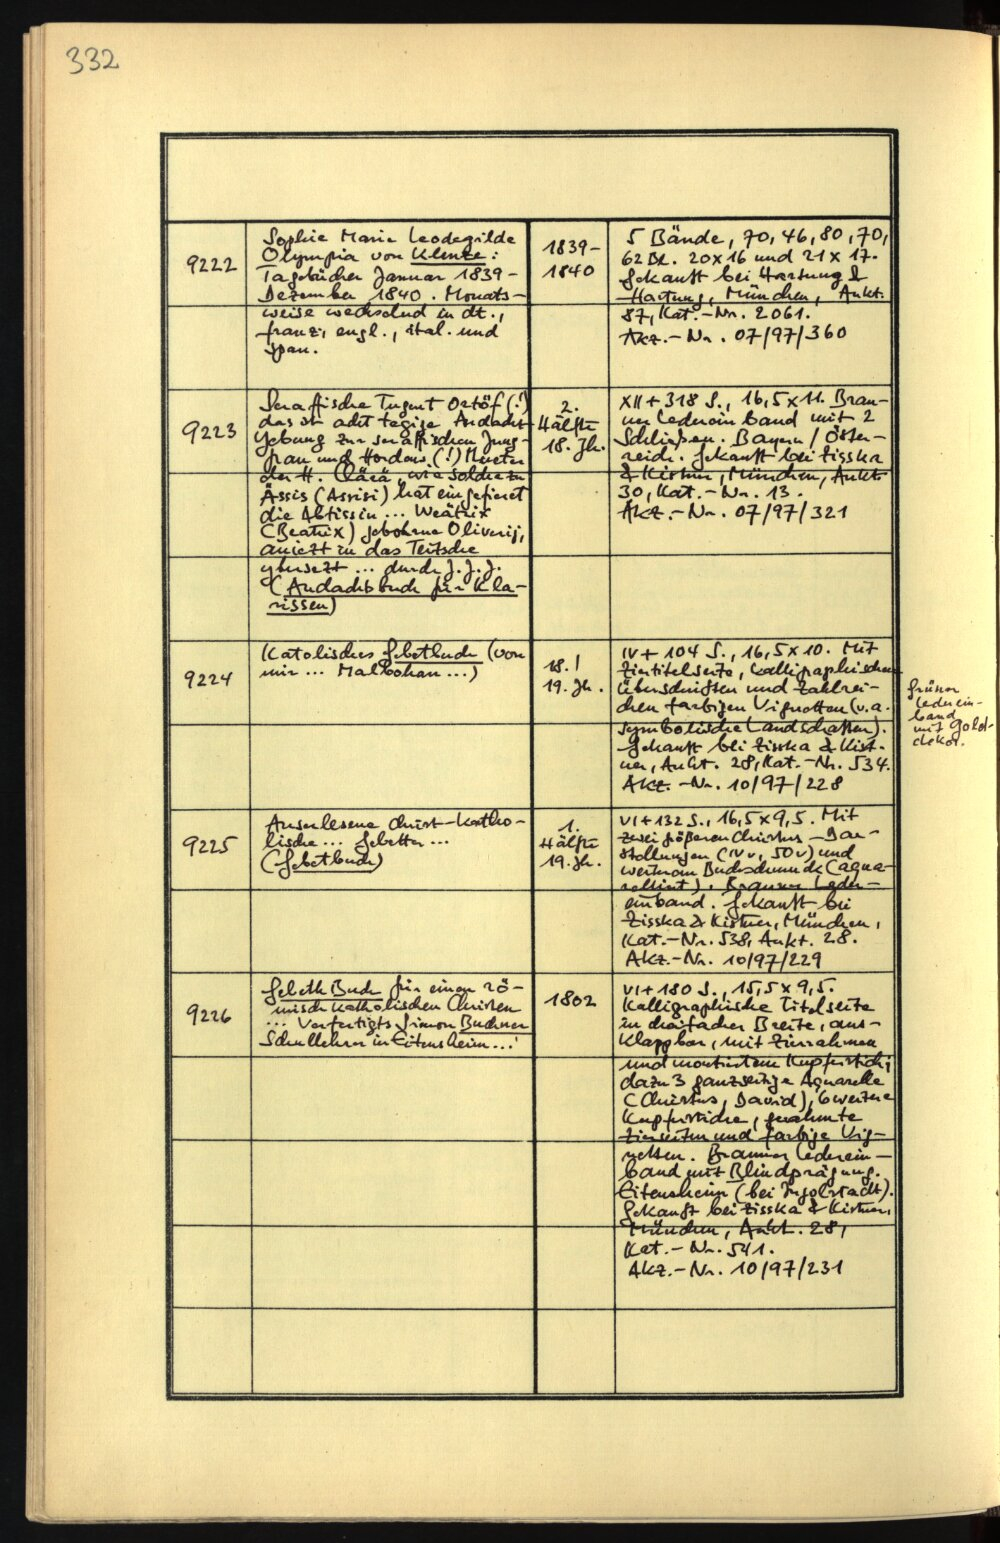 332
9222
Sophie Marie Leodegilde
Olympia von Klenze:
Tagebücher Januar 1839-
Dezember 1840. Monats-
weise wechselnd in dt.,
franz., engl., ital. und
span.
1839-
1840
5 Bände, 70, 46, 80, 70,
62 Bl. 20x16 und 21x17.
Gekauft bei Hartung &
Hartung, München, Aukt.
87, Kat.-Nr. 2061.
Akz.-Nr. 07/97/360
9223
Seraffische Tugent Ostöf (!)
das ist acht tägige Andacht
Yebung zur seraffischen Jung-
frau und Hordens (!)
der H. Clara, wie solche zu
Ässis (Assisi) hat eingefieret
die Abtissin ... Weätrix
(Beatrix) gebohrne Oliverij,
aniezt in das Teitsche
yberszt ... durch J. J. J.
(Andachtsbuch für Kla-
rissen)
2.
Hälfte
18. Jh.
XII + 318 S., 16,5x11. Brau-
ner Ledereinband mit 2
Schließen. Bayern / Öster-
reich. Gekauft bei Zisska
& Kistner, München, Aukt.
30, Kat.-Nr. 13.
Akz.-Nr. 07/97/321
9224
Katolisches Gebetbuch (von
mir ... ...)
18./
19. Jh.
IV + 104 S., 16,5x10. Mit
Ziertitelseite, kalligraphischen
Überschriften und zahlrei-
chen farbigen Vignetten (u.a.
symbolische Landschaften).
Gekauft bei Zisska & Kist-
ner, Aukt. 28, Kat.-Nr. 534.
Akz.-Nr. 10/97/228
grüner
Lederein-
band
mit Gold-
dekor.
9225
Auserlesene Christ-Katho-
lische ... Gebetter ...
(Gebetbuch)
1.
Hälfte
19. Jh.
VI + 132 S., 16,5x9,5. Mit
zwei größeren Christus-Dar-
stellungen (IVv, 50v) und
weiterem Buchschmuck (aqua-
relliert). Brauner Leder-
einband. Gekauft bei
Zisska & Kistner, München,
Kat.-Nr. 538, Aukt. 28.
Akz.-Nr. 10/97/229
9226
Gebeth Buch für einen rö-
misch katholischen Christen
... Verfertigts Simon Buchner
Schullehrer in Eitensheim ...
1802
VI + 180 S., 15,5x9,5.
Kalligraphische Titelseite
in dreifacher Breite, aus-
klappbar, mit Zierrahmen
und montiertem Kupferstich;
dazu 3 ganzseitige Aquarelle
(Christus, David), 6 weitere
Kupferstiche, gerahmte
Zierseiten und farbige Vig-
netten. Brauner Lederein-
band mit Blindprägung.
Eitensheim (bei Ingolstadt).
Gekauft bei Zisska & Kistner,
München, Aukt. 28,
Kat.-Nr. 541.
Akz.-Nr. 10/97/231